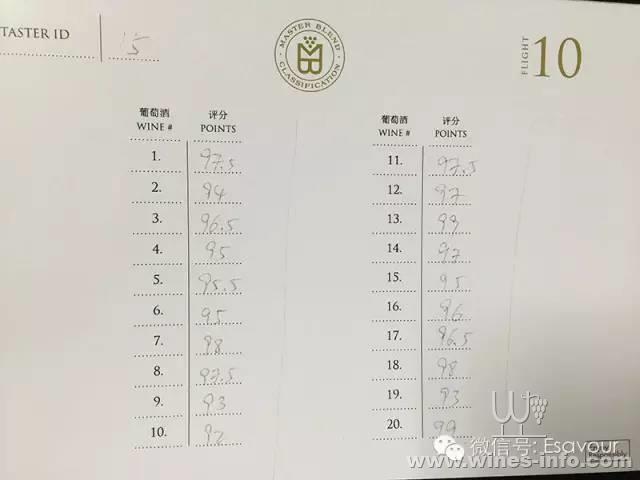 TASTER ID 15
MASTER BLEND CLASSIFICATION
MB
FLIGHT 10
葡萄酒 评分
WINE # POINTS
1. 97.5
2. 94
3. 96.5
4. 95
5. 95.5
6. 95
7. 98
8. 97.5
9. 93
10. 92
葡萄酒 评分
WINE # POINTS
11. 97.5
12. 97
13. 99
14. 97
15. 95
16. 96
17. 96.5
18. 98
19. 93
20. 99
微信号: Esavour
www.wines-info.com
Responsibly